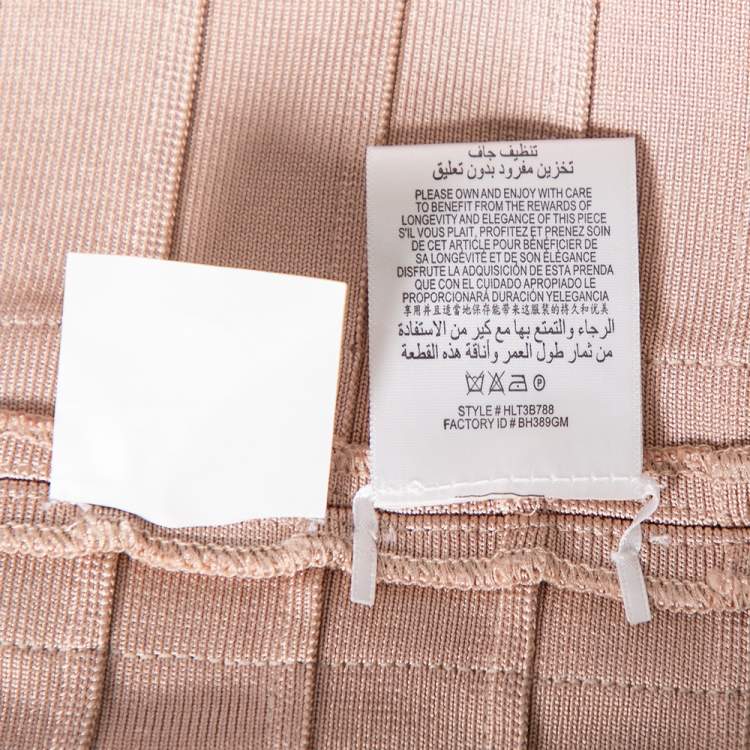 تنظيف جاف
تخزين مفرود بدون تعليق
PLEASE OWN AND ENJOY WITH CARE
TO BENEFIT FROM THE REWARDS OF
LONGEVITY AND ELEGANCE OF THIS PIECE
S'IL VOUS PLAIT, PROFITEZ ET PRENEZ SOIN
DE CET ARTICLE POUR BÉNÉFICIER DE
SA LONGÉVITÉ ET DE SON ÉLÉGANCE
DISFRUTE LA ADQUISICIÓN DE ESTA PRENDA
QUE CON EL CUIDADO APROPIADO LE
PROPORCIONARÁ DURACIÓN YELEGANCIA
享用并且适当地保存能带来这服装的持久和优美
الرجاء والتمتع بها مع كير من الاستفادة
من ثمار طول العمر وأناقة هذه القطعة
STYLE # HLT3B788
FACTORY ID # BH389GM